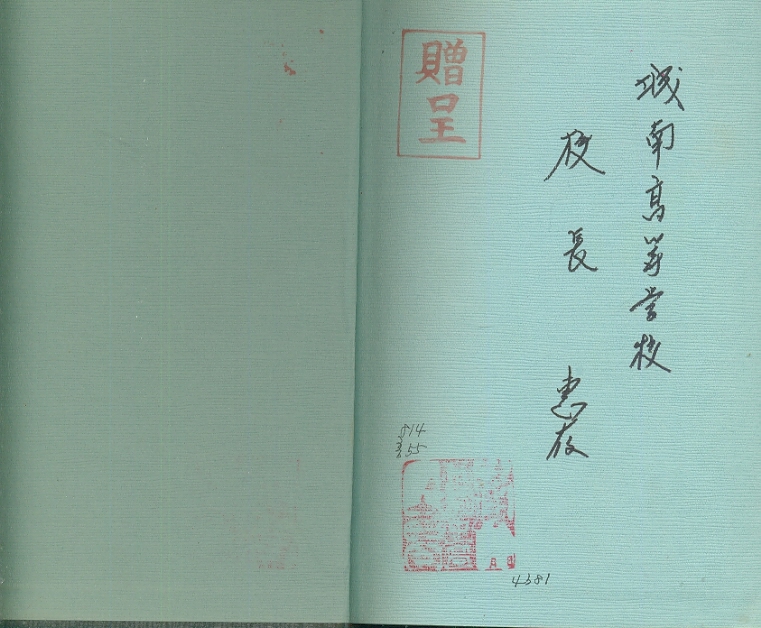 城南高等学校
校長 惠存
贈呈
814
355
4681